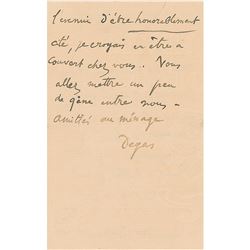 l'ennui d'être honorablement
cité, je croyais en être à
couvert chez vous.. Vous
allez mettre un peu
de gêne entre nous -
Amitiés au ménage
Degas